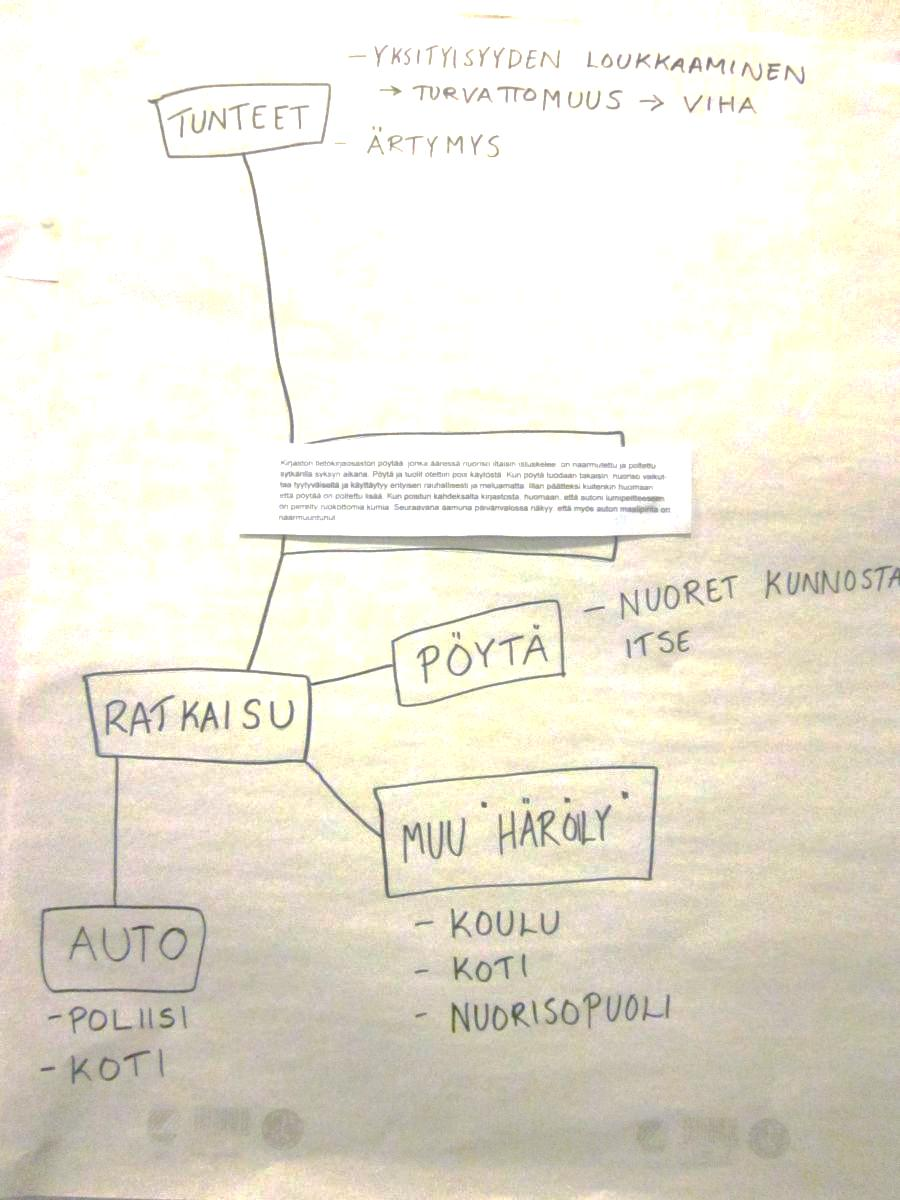 - YKSITYISYYDEN LOUKKAAMINEN
→ TURVATTOMUUS → VIHA
TUNTEET
- ÄRTYMYS
Kirjaston tietokirjaosaston pöytää, jonka ääressä nuoriso iltaisin istuskelee, on naarmutettu ja poltettu
sytkärillä syksyn aikana. Pöytä ja tuolit otettiin pois käytöstä. Kun pöytä tuodaan takaisin, nuoriso vaikut-
taa tyytyväiseltä ja käyttäytyy erityisen rauhallisesti ja meluamatta. Illan päätteeksi kuitenkin huomaan,
että pöytää on poltettu lisää. Kun poistun kahdeksalta kirjastosta, huomaan, että autoni lumipeitteeseen
on piirretty ruokottomia kuvia. Seuraavana aamuna päivänvalossa näkyy, että myös auton maalipinta on
naarmuuntunut
- NUORET KUNNOSTA
ITSE
PÖYTÄ
RATKAISU
MUU "HÄRÖILY"
AUTO
- KOULU
- KOTI
- NUORISOPUOLI
- POLIISI
- KOTI